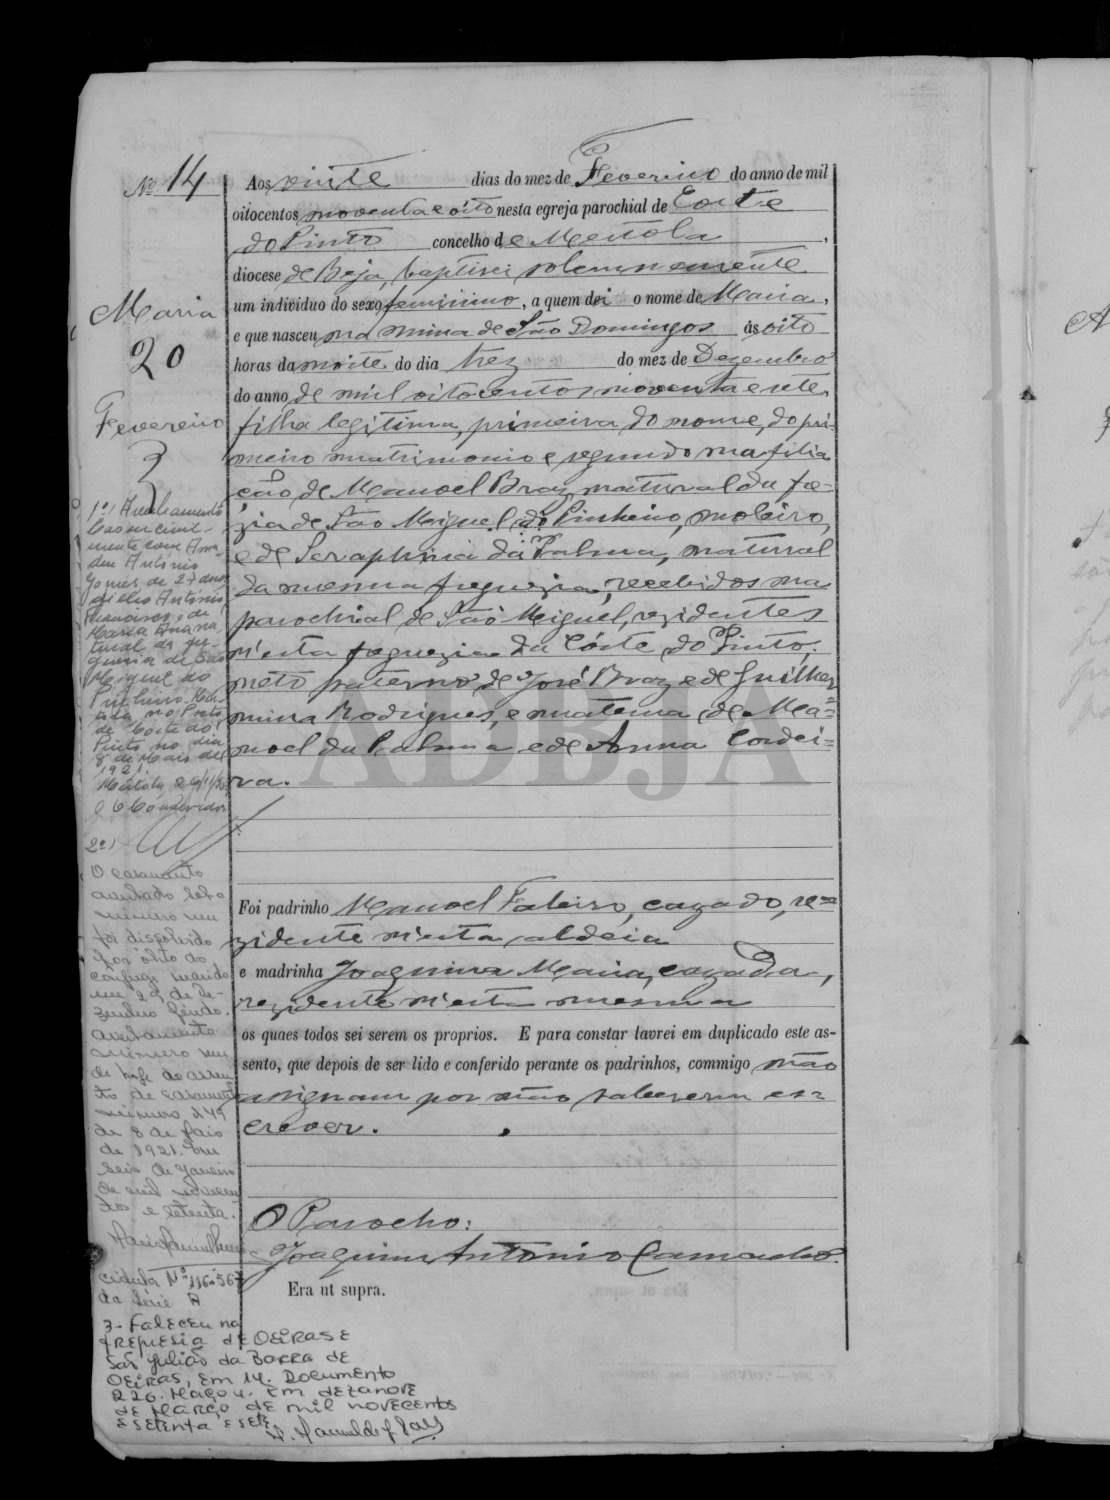 Nº 14
Maria
20
Fevereiro
Aos vinte dias do mez de Fevereiro do anno de mil
oitocentos noventa e oito nesta egreja parochial de Corte
do Pinto concelho de Mertola,
diocese de Beja, baptisei solemnemente
um individuo do sexo feminino, a quem dei o nome de Maria,
e que nasceu na mina de São Domingos ás oito
horas da noite do dia trez do mez de Dezembro
do anno de mil oitocentos noventa e sete,
filha legitima, primeira do nome, do pri-
meiro matrimonio e segundo na filia
ção de Manoel Braz, natural da fre-
zia de São Miguel do Pinheiro, moleiro,
e de Seraphina da Palma, natural
da mesma freguezia, recebidos na
parochial de São Miguel, rezidentes
n'esta freguezia da Côrte do Pinto,
neto paterno de José Braz e de Guilher
mina Rodrigues, e materna de Ma=
noel da Palma e de Anna Cordei=
ra.
Foi padrinho Manoel Faleiro, cazado, re=
zidente n'esta aldeia
e madrinha Joaquina Maria, cazada,
rezidente n'esta mesma
os quaes todos sei serem os proprios. E para constar lavrei em duplicado este as-
sento, que depois de ser lido e conferido perante os padrinhos, commigo não
assignam por não saberem es=
crever.
O Parocho:
Joaquim Antonio Camacho.
Era ut supra.
1º) Averbamento
Casou civil-
mente com Ama-
deu António
Gomes de 27 anos
filho António
e de
Maria Ana na
tural da fre-
guesia de São
Miguel do
Pinheiro
no Posto
de Corte do
Pinto no dia
8 de Maio de
1921.
O Conservador
2º)
O casamento
averbado sob o
número um
foi dissolvido
por óbito do
cônjuge marido
em 29 de De-
zembro findo.
Averbamento
número um
de hoje ao assen
to de casamento
número 249
de 8 de Maio
de 1921. Em
seis de Janeiro
de mil novecen
tos e setenta.
cédula Nº 116.567
da Série A
3- Faleceu na
freguesia de Oeiras e
São Julião da Barra de
Oeiras, em 14. Documento
226. Maço 4. Em dezanove
de Março de mil novecentos
e setenta e sete
ADBJA